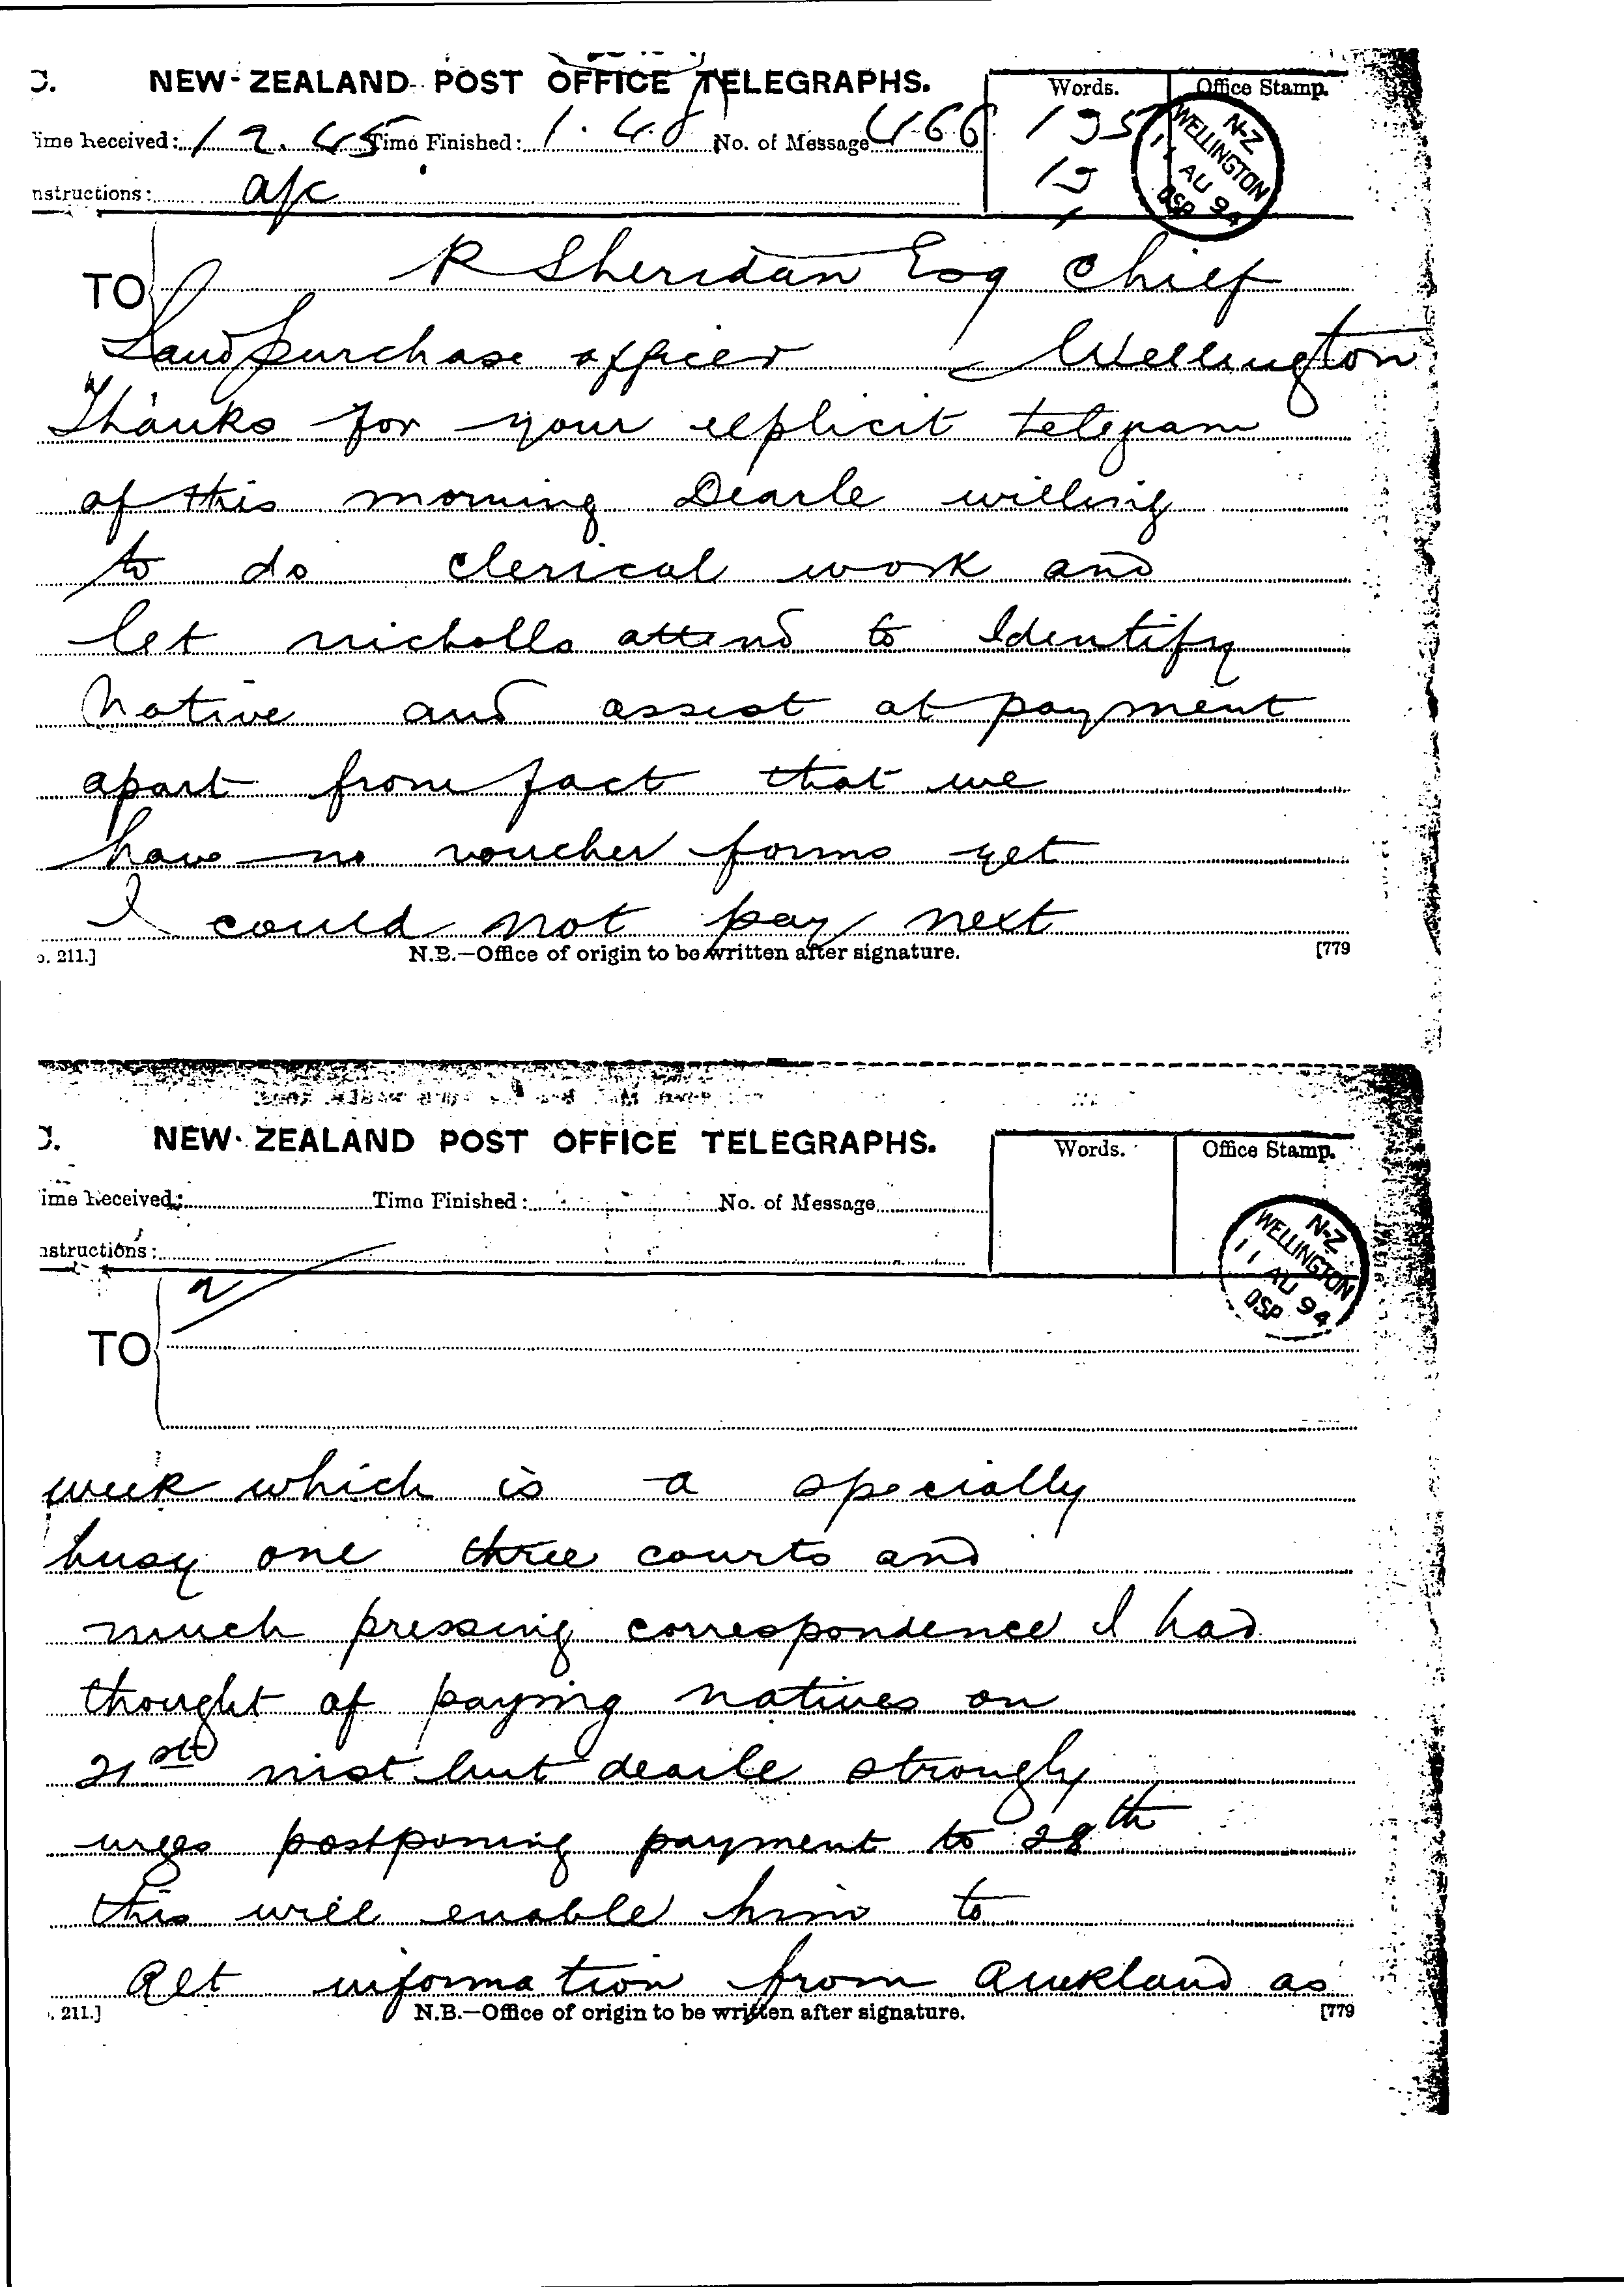 O. NEW-ZEALAND POST OFFICE TELEGRAPHS. Words. Office Stamp.
ime Received: 12.45 Time Finished: 1.40 No. of Message 466 195
nstructions: a/c 19
N-Z
WELLINGTON
11 AU 94
OSP
TO R Sheridan Esq Chief
Land purchase officer Wellington
Thanks for your explicit telegram
of this morning Dearle willing
to do clerical work and
let nicholls attend to Identify
Native and assist at payment
apart from fact that we
have no voucher forms yet
I could not pay next
o. 211.] N.B.—Office of origin to be written after signature. [779
O. NEW-ZEALAND POST OFFICE TELEGRAPHS. Words. Office Stamp.
ime Received: Time Finished: No. of Message
nstructions:
N-Z
WELLINGTON
11 AU 94
OSP
2
TO
week which is a specially
busy one three courts and
much pressing correspondence I had
thought of paying natives on
21st inst but dearle strongly
urges postponing payment to 28th
this will enable him to
get information from Auckland as
. 211.] N.B.—Office of origin to be written after signature. [779